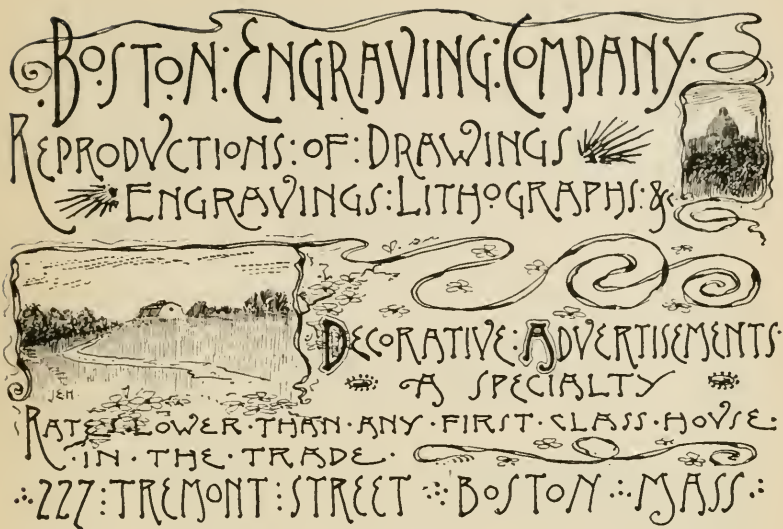 BOSTON: ENGRAVING: COMPANY.
REPRODVCTIONS: OF: DRAWINGS
ENGRAVINGS: LITHOGRAPHS: &c
JEH
DECORATIVE: ADVERTISEMENTS.
A SPECIALTY
RATES·LOWER·THAN·ANY·FIRST·CLASS·HOVSE:
·IN·THE·TRADE·
227: TREMONT: STREET BOSTON MASS